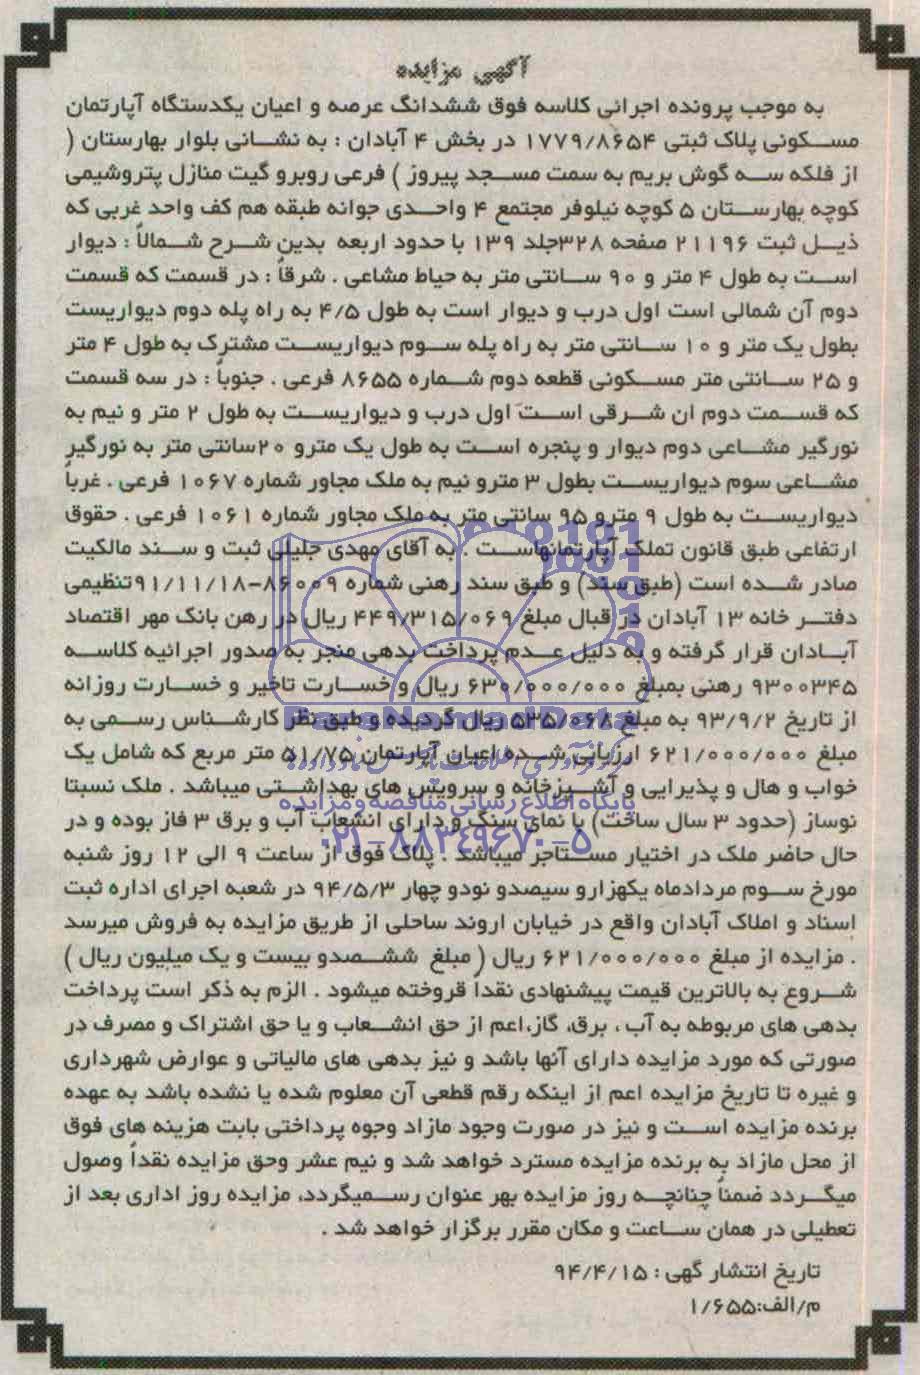 آگهی مزایده
به موجب پرونده اجرائی کلاسه فوق ششدانگ عرصه و اعیان یکدستگاه آپارتمان
مسکونی پلاک ثبتی ۱۷۷۹/۸۶۵۴ در بخش ۴ آبادان : به نشانی بلوار بهارستان (
از فلکه سه گوش بریم به سمت مسجد پیروز ) فرعی روبرو گیت منازل پتروشیمی
کوچه بهارستان ۵ کوچه نیلوفر مجتمع ۴ واحدی جوانه طبقه هم کف واحد غربی که
ذیل ثبت ۲۱۱۹۶ صفحه ۳۲۸جلد ۱۳۹ با حدود اربعه بدین شرح شمالاً : دیوار
است به طول ۴ متر و ۹۰ سانتی متر به حیاط مشاعی . شرقاً : در قسمت که قسمت
دوم آن شمالی است اول درب و دیوار است به طول ۴/۵ به راه پله دوم دیواریست
بطول یک متر و ۱۰ سانتی متر به راه پله سوم دیواریست مشترک به طول ۴ متر
و ۲۵ سانتی متر مسکونی قطعه دوم شماره ۸۶۵۵ فرعی . جنوباً : در سه قسمت
که قسمت دوم ان شرقی است اول درب و دیواریست به طول ۲ متر و نیم به
نورگیر مشاعی دوم دیوار و پنجره است به طول یک مترو ۲۰سانتی متر به نورگیر
مشاعی سوم دیواریست بطول ۳ مترو نیم به ملک مجاور شماره ۱۰۶۷ فرعی . غرباً
دیواریست به طول ۹ مترو ۹۵ سانتی متر به ملک مجاور شماره ۱۰۶۱ فرعی . حقوق
ارتفاعی طبق قانون تملک آپارتمانهاست . به آقای مهدی جلیلی ثبت و سند مالکیت
صادر شده است (طبق سند) و طبق سند رهنی شماره ۸۶۰۰۹-۹۱/۱۱/۱۸تنظیمی
دفتر خانه ۱۳ آبادان در قبال مبلغ ۴۴۹/۳۱۵/۰۶۹ ریال در رهن بانک مهر اقتصاد
آبادان قرار گرفته و به دلیل عدم پرداخت بدهی منجر به صدور اجرائیه کلاسه
۹۳۰۰۳۴۵ رهنی بمبلغ ۶۳۰/۰۰۰/۰۰۰ ریال و خسارت تاخیر و خسارت روزانه
از تاریخ ۹۳/۹/۲ به مبلغ ۵۳۵/۰۶۸ ریال گردیده و طبق نظر کارشناس رسمی به
مبلغ ۶۲۱/۰۰۰/۰۰۰ ارزیابی شده اعیان آپارتمان ۵۱/۷۵ متر مربع که شامل یک
خواب و هال و پذیرایی و آشپزخانه و سرویس های بهداشتی میباشد . ملک نسبتا
نوساز (حدود ۳ سال ساخت) با نمای سنگ و دارای انشعاب آب و برق ۳ فاز بوده و در
حال حاضر ملک در اختیار مستاجر میباشد . پلاک فوق از ساعت ۹ الی ۱۲ روز شنبه
مورخ سوم مردادماه یکهزارو سیصدو نودو چهار ۹۴/۵/۳ در شعبه اجرای اداره ثبت
اسناد و املاک آبادان واقع در خیابان اروند ساحلی از طریق مزایده به فروش میرسد
. مزایده از مبلغ ۶۲۱/۰۰۰/۰۰۰ ریال ( مبلغ ششصدو بیست و یک میلیون ریال )
شروع به بالاترین قیمت پیشنهادی نقدا قروخته میشود . الزم به ذکر است پرداخت
بدهی های مربوطه به آب ، برق، گاز،اعم از حق انشعاب و یا حق اشتراک و مصرف در
صورتی که مورد مزایده دارای آنها باشد و نیز بدهی های مالیاتی و عوارض شهرداری
و غیره تا تاریخ مزایده اعم از اینکه رقم قطعی آن معلوم شده یا نشده باشد به عهده
برنده مزایده است و نیز در صورت وجود مازاد وجوه پرداختی بابت هزینه های فوق
از محل مازاد به برنده مزایده مسترد خواهد شد و نیم عشر وحق مزایده نقداً وصول
میگردد ضمناً چنانچه روز مزایده بهر عنوان رسمیگردد، مزایده روز اداری بعد از
تعطیلی در همان ساعت و مکان مقرر برگزار خواهد شد .
تاریخ انتشار گهی : ۹۴/۴/۱۵
م/الف:۱/۶۵۵
ParsNamadData
پایگاه اطلاع رسانی مناقصه و مزایده
۰۲۱-۸۸۳۴۹۶۷۰-۵